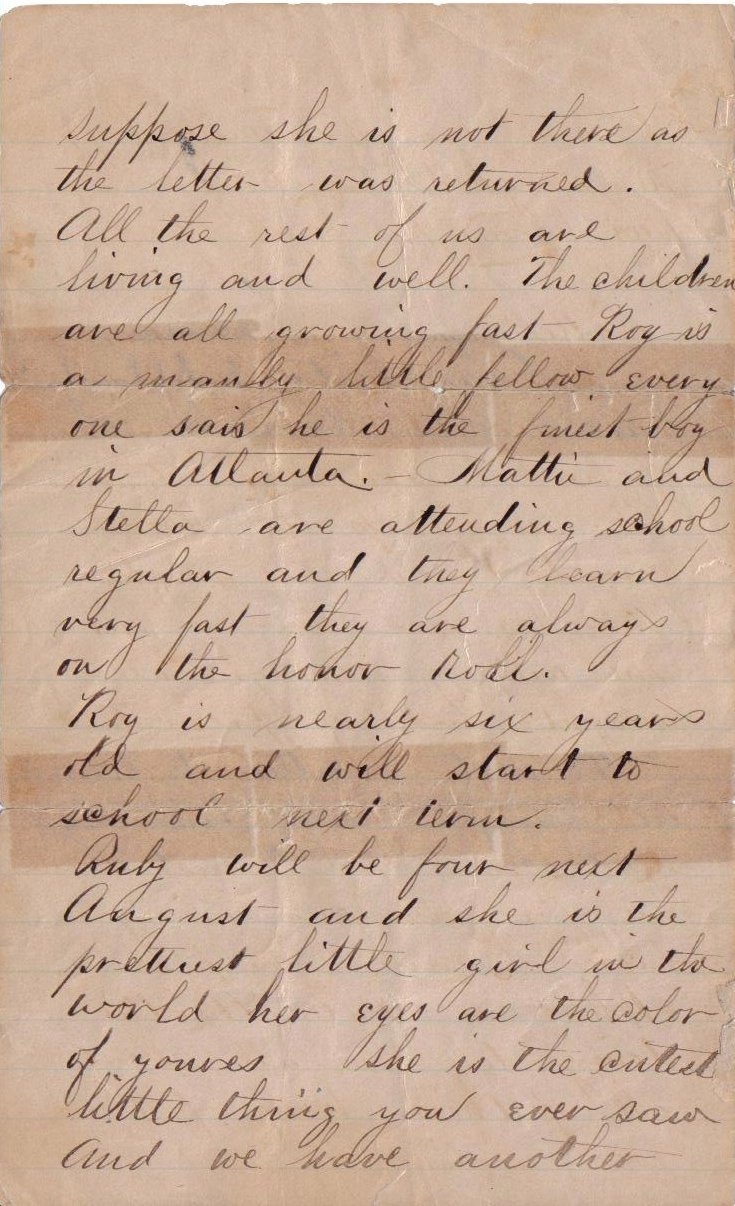 suppose she is not there as
the letter was returned.
All the rest of us are
living and well. The children
are all growing fast Roy is
a manly little fellow every
one sais he is the finest boy
in Atlanta. - Mattie and
Stella are attending school
regular and they learn
very fast they are always
on the honor roll.
Roy is nearly six years
old and will start to
school next term.
Ruby will be four next
August and she is the
prettiest little girl in the
world her eyes are the color
of youres she is the cutest
little thing you ever saw
And we have another